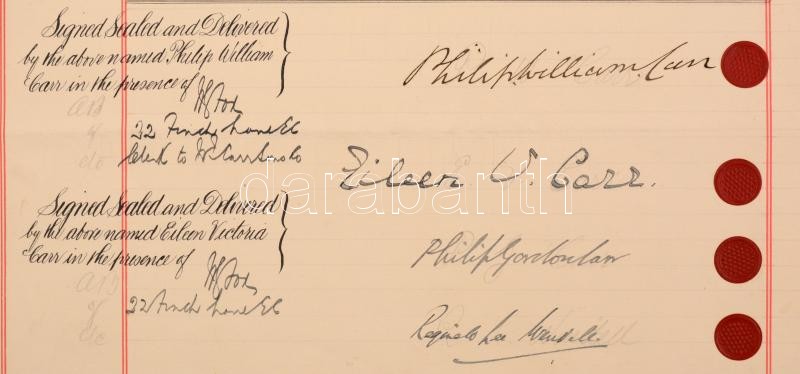 Signed Sealed and Delivered
by the above named Philip William
Carr in the presence of
22 Finch Lane EC
Clerk to W Carr Sons & Co
Philip William Carr
Eileen V. Carr.
Signed Sealed and Delivered
by the above named Eilen Victoria
Carr in the presence of
22 Finch Lane EC
Philip Gordon Carr
Reginald Lee
darabanth